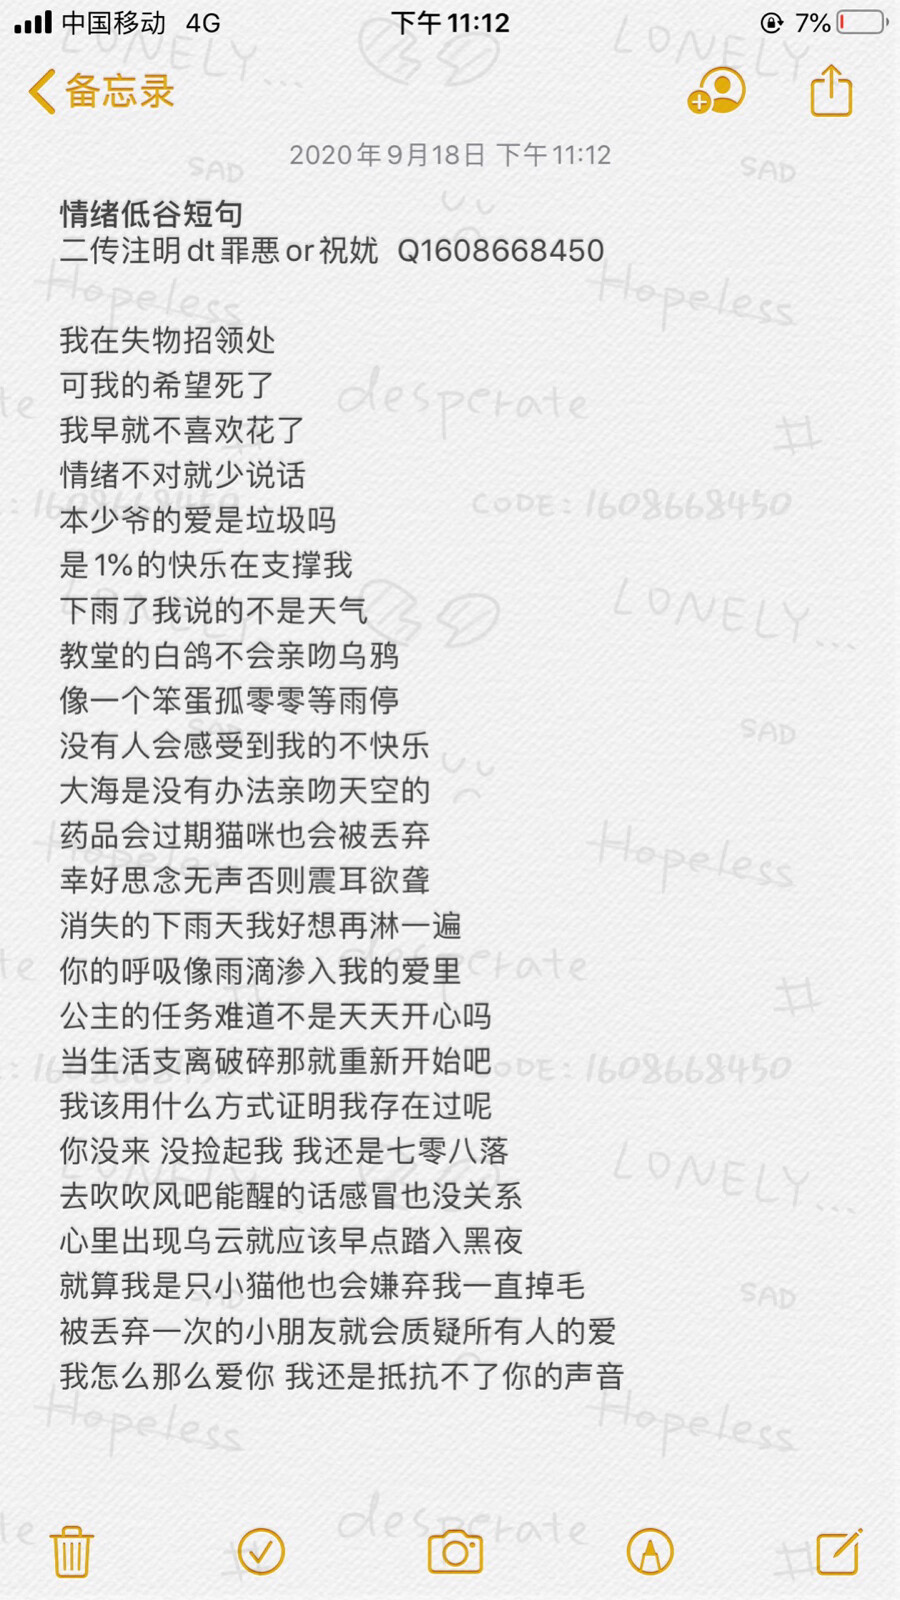 中国移动 4G 下午11:12 7%
备忘录
2020年9月18日 下午11:12
情绪低谷短句
二传注明dt罪悪or祝妩 Q1608668450
我在失物招领处
可我的希望死了
我早就不喜欢花了
情绪不对就少说话
本少爷的爱是垃圾吗
是1%的快乐在支撑我
下雨了我说的不是天气
教堂的白鸽不会亲吻乌鸦
像一个笨蛋孤零零等雨停
没有人会感受到我的不快乐
大海是没有办法亲吻天空的
药品会过期猫咪也会被丢弃
幸好思念无声否则震耳欲聋
消失的下雨天我好想再淋一遍
你的呼吸像雨滴渗入我的爱里
公主的任务难道不是天天开心吗
当生活支离破碎那就重新开始吧
我该用什么方式证明我存在过呢
你没来 没捡起我 我还是七零八落
去吹吹风吧能醒的话感冒也没关系
心里出现乌云就应该早点踏入黑夜
就算我是只小猫他也会嫌弃我一直掉毛
被丢弃一次的小朋友就会质疑所有人的爱
我怎么那么爱你 我还是抵抗不了你的声音
LONELY...
LONELY
SAD
SAD
Hopeless
Hopeless
desperate
#
CODE:1608668450
LONELY...
SAD
Hopeless
desperate
#
CODE:1608668450
LONELY...
SAD
Hopeless
Hopeless
desperate
#